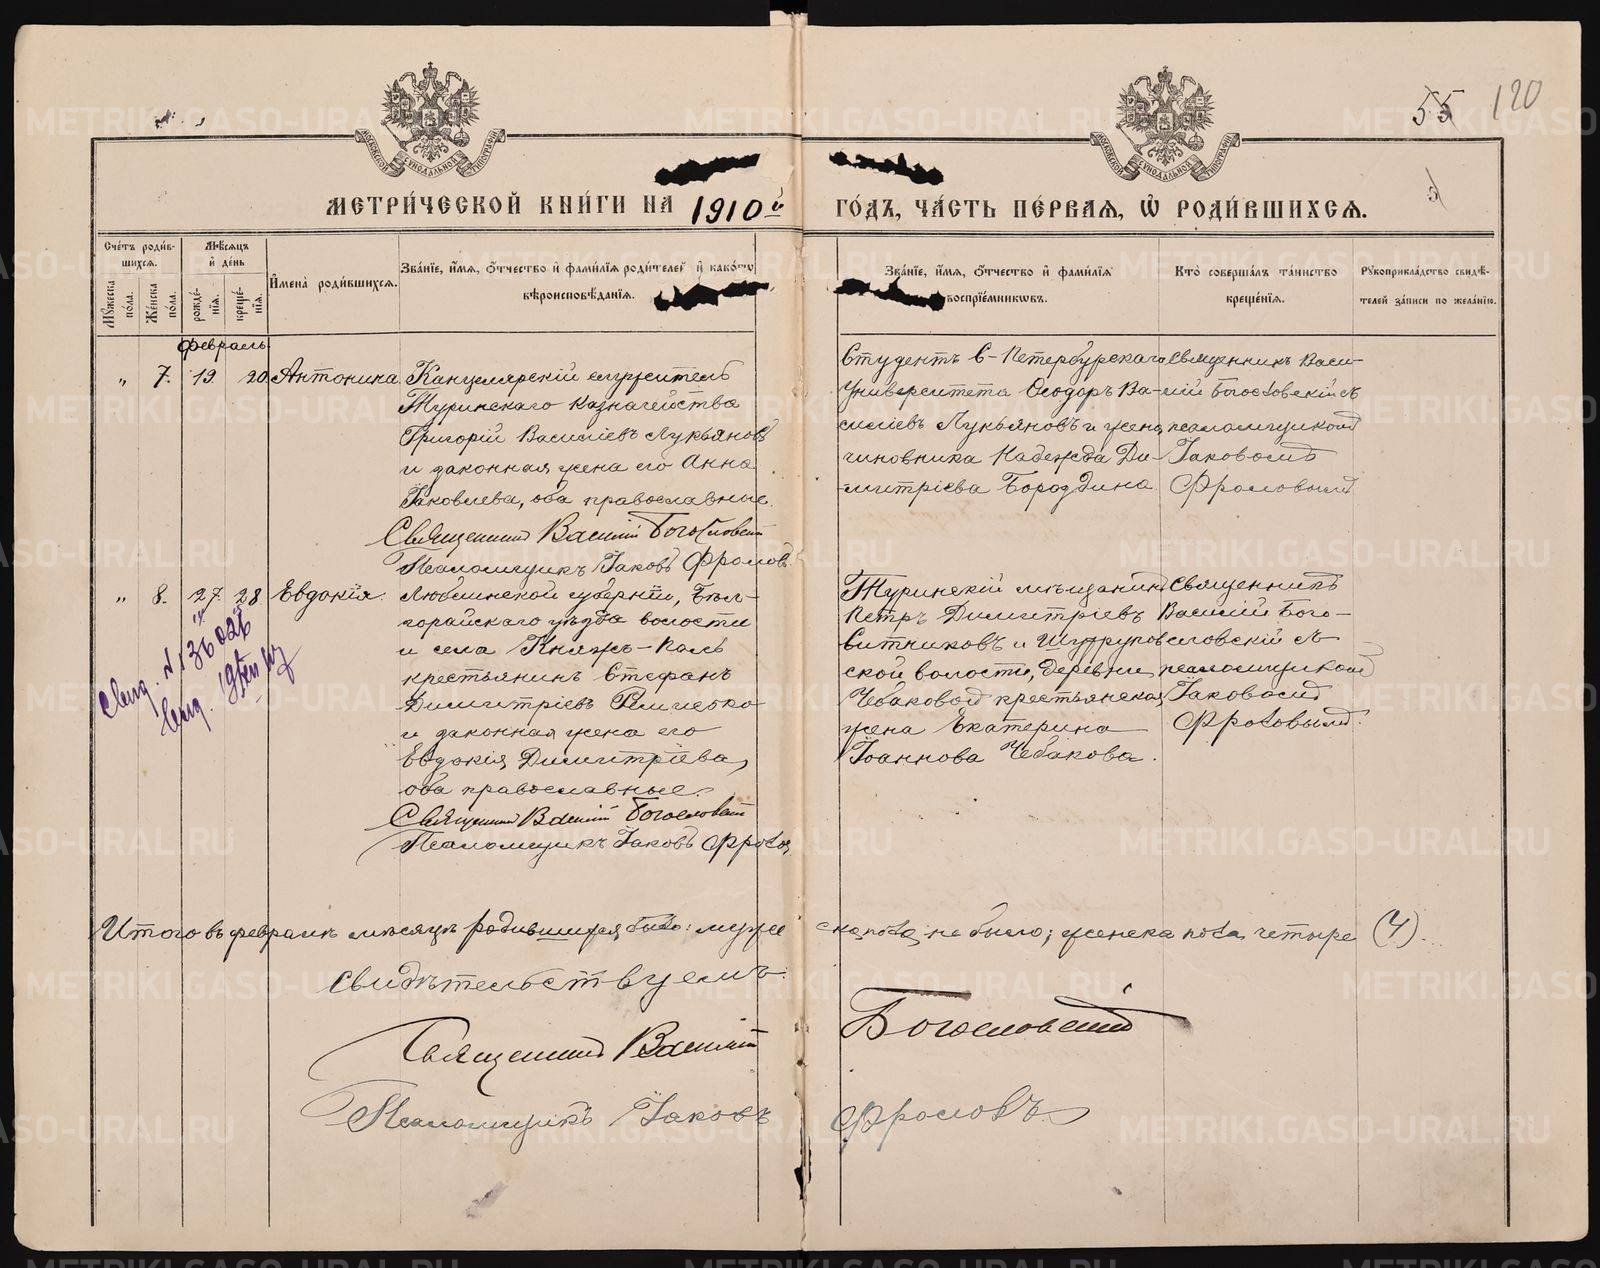 55 120
МЕТРИ́ЧЕСКОЙ КНИ́ГИ НА 1910й ГО́ДЪ, ЧА́СТЬ ПЕ́РВАЯ, Ѡ РОДИ́ВШИХСЯ.
Сче́тъ роди́в-
шихся.
Му́жеска по́ла.
Же́нска по́ла.
Мѣ́сяцъ
и де́нь
рожде́-
нїя.
креще́-
нїя.
И҆мена̀ роди́вшихся.
Зва́нїе, и҆́мя, о҆́тчество и҆ фами́лїя роди́телей и҆ како́гѡ
вѣроисповѣ́данїя.
Зва́нїе, и҆́мя, о҆́тчество и҆ фами́лїя
воспрїе́мникѡвъ.
Кто̀ соверша́лъ та́инство
креще́нїя.
Рукоприкла́дство свидѣ́-
телей за́писи по жела́нїю.
Февраль
" 7. 19 20 Антонина
Канцелярскій служитель
Туринскаго казначейства
Григорій Васильевъ Лукьяновъ
и законная жена его Анна
Іаковлева, оба православные.
Священникъ Василій Богословскій
Псаломщикъ Іаковъ Фроловъ
Студентъ С-Петербургскаго
Университета Ѳеодоръ Ва-
силіевъ Лукьяновъ и жена
чиновника Надежда Ди-
митріева Бороздина
Священникъ Васи-
лій Богословскій съ
псаломщикомъ
Іаковомъ
Фроловымъ
" 8. 27 28 Евдокія
Люблинской губерніи, Бѣл-
горайскаго уѣзда волости
и села Княжъ-Поль
крестьянинъ Стефанъ
Димитріевъ
и законная жена его
Евдокія Димитріева,
оба православные.
Священникъ Василій Богословскій
Псаломщикъ Іаковъ Фроловъ
Туринскій мѣщанинъ
Петръ Димитріевъ
Ситниковъ и
ской волости, деревни
Чебаковой крестьянская
жена Екатерина
Іоаннова Чебакова.
Священникъ
Василій Бого-
словскій съ
псаломщикомъ
Іаковомъ
Фроловымъ.
Итого въ февралѣ мѣсяцѣ родившихся было: муже ска пола не было; женска пола четыре (4).
Свидѣтельствуемъ:
Священникъ Василій Богословскій
Псаломщикъ Іаковъ Фроловъ
METRIKI.GASO-URAL.RU